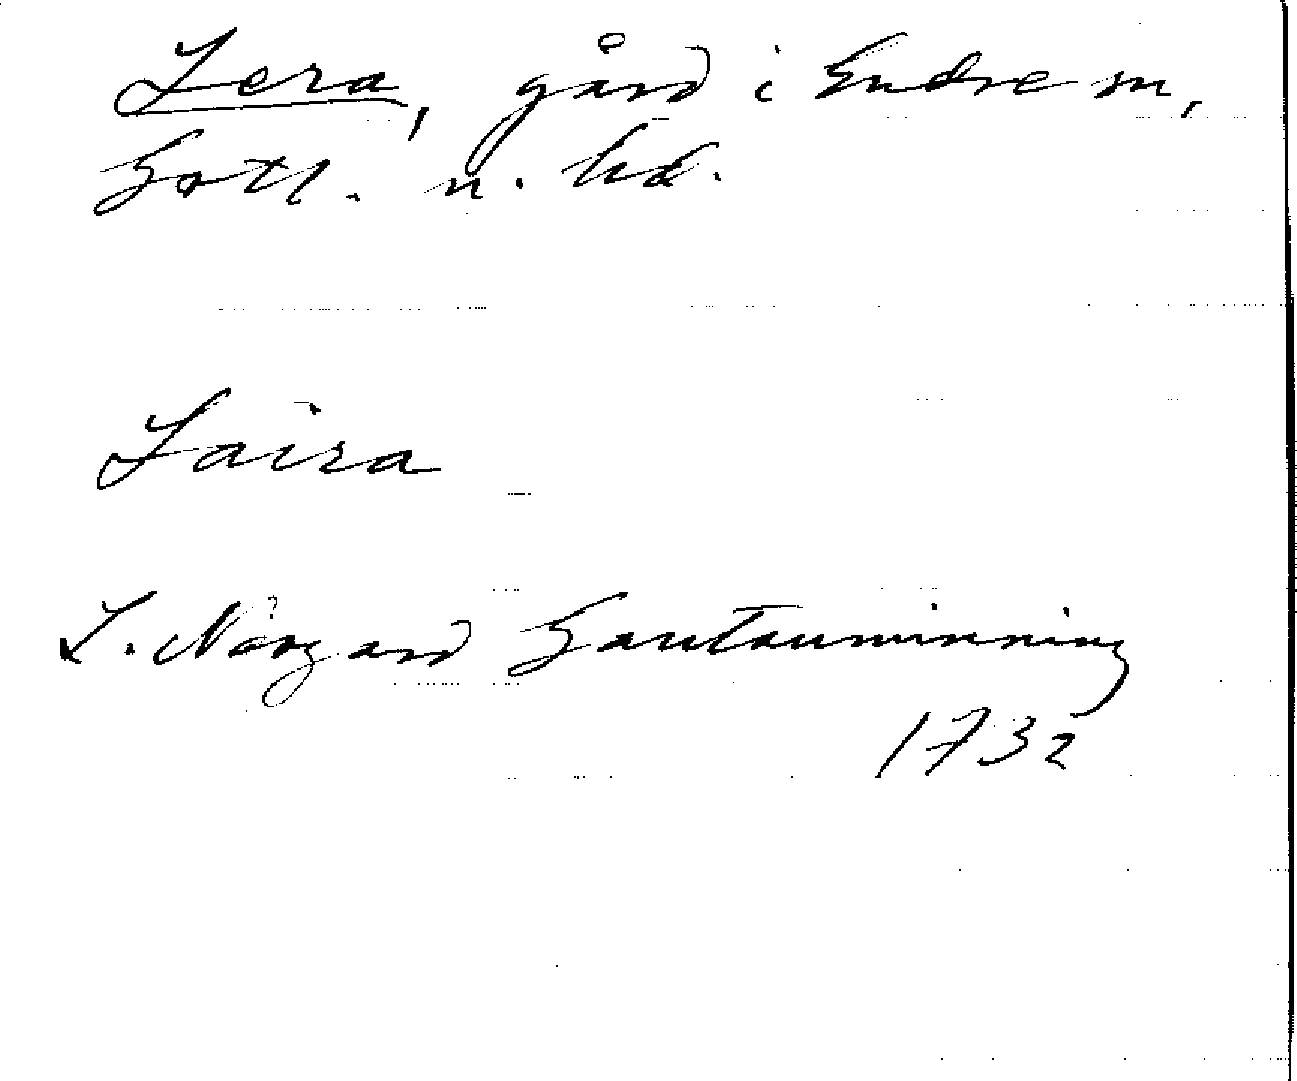 Lera, gård i Endre sn,
Gotl. n. hd.
Laira
L. Nörgard Gautauminning
1732